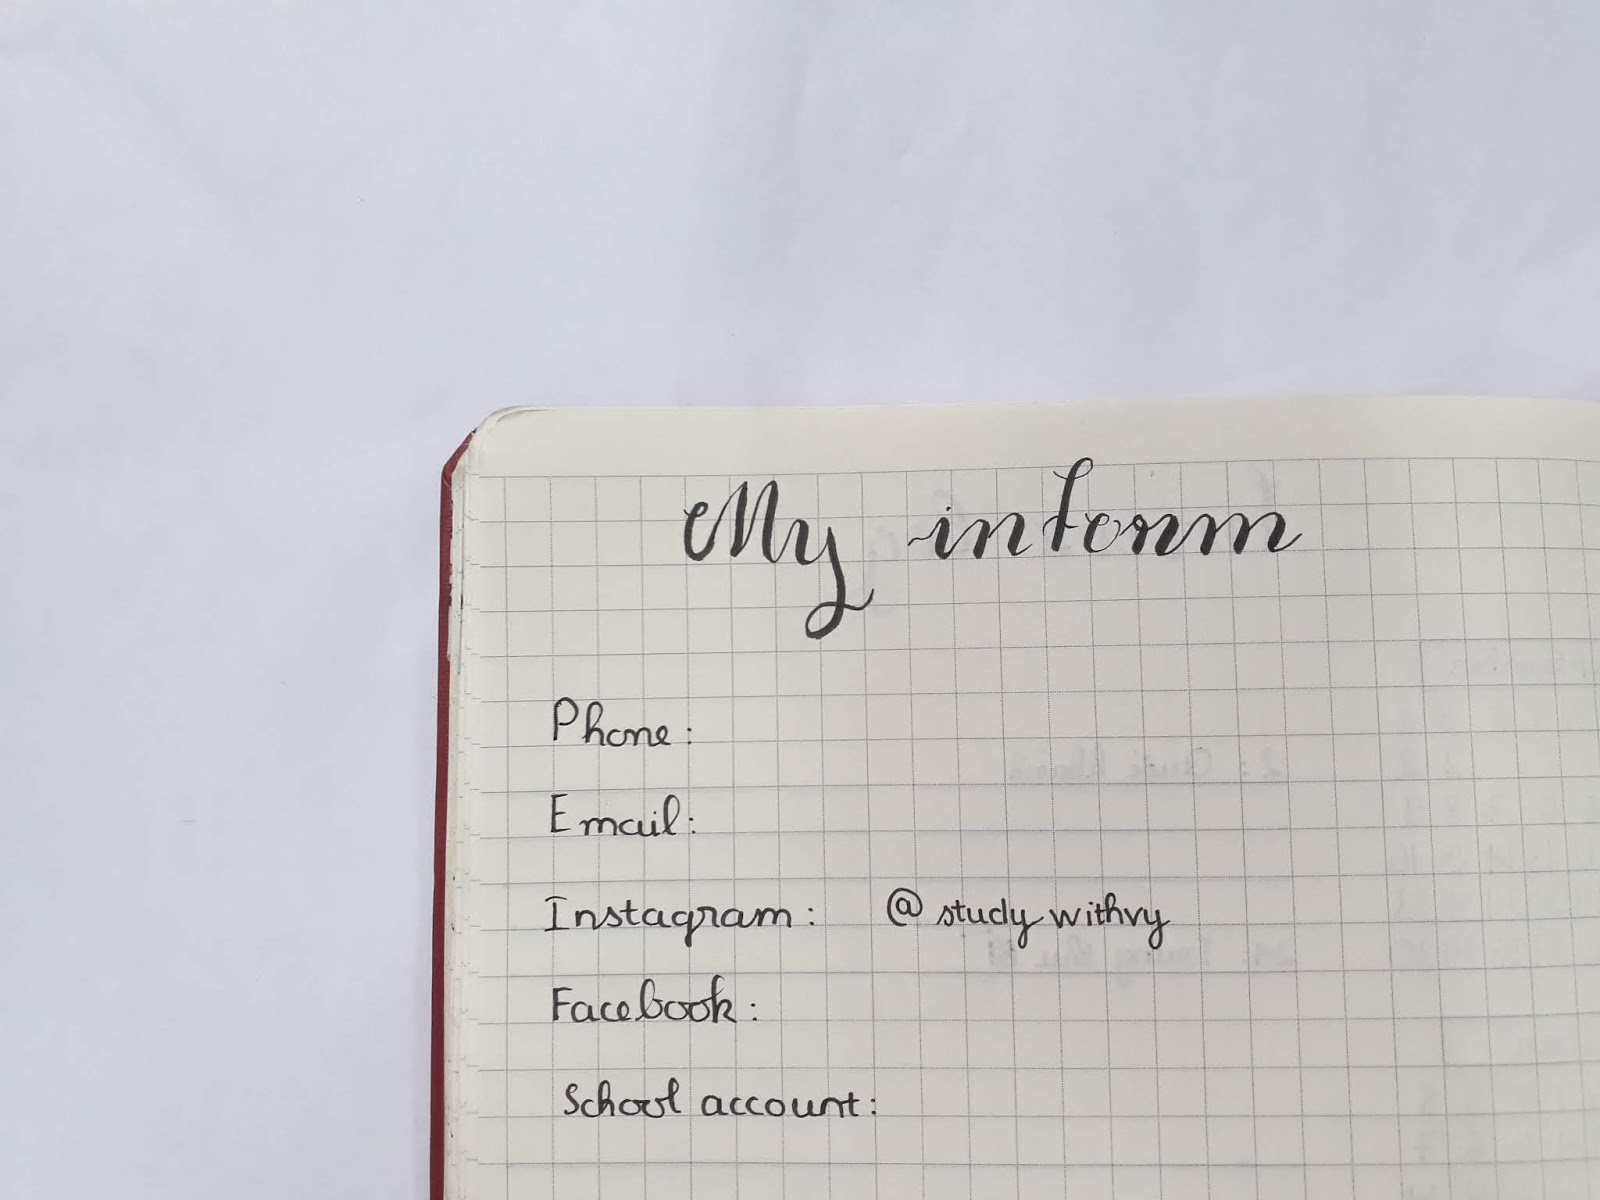 My inform
Phone:
Email:
Instagram: @studywithvy
Facebook:
School account: